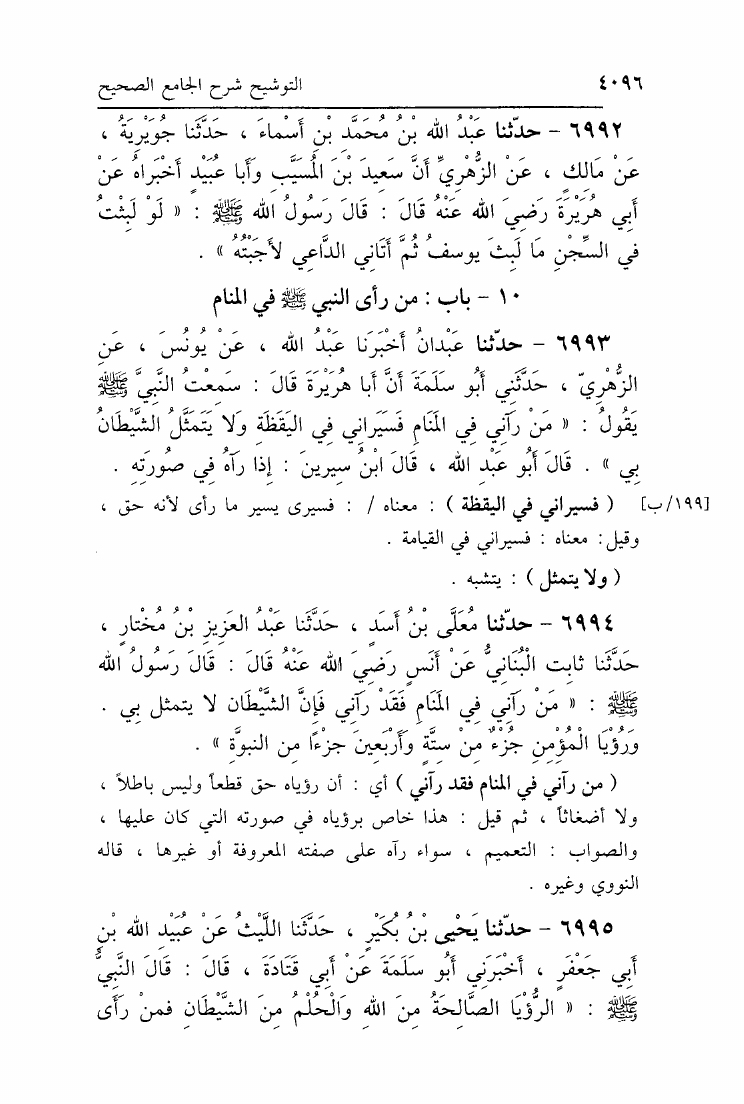 ٤٠٩٦ التوشيح شرح الجامع الصحيح
٦٩٩٢ - حدّثنا عَبْدُ الله بْنُ مُحَمَّدِ بْنِ أَسْماءَ ، حَدَّثَنا جُوَيْرِيَةُ ،
عَنْ مَالِكٍ ، عَنْ الزُّهْرِيِّ أَنَّ سَعِيدَ بْنَ المُسَيَّبِ وَأَبا عُبَيْدٍ أَخْبَراهُ عَنْ
أَبي هُرَيْرَةَ رَضِيَ الله عَنْهُ قَالَ : قَالَ رَسُولُ الله ﷺ : « لَوْ لَبِثْتُ
في السِّجْنِ مَا لَبِثَ يوسفُ ثُمَّ أَتَاني الدَّاعي لأَجَبْتُهُ » .
١٠ - باب : من رأى النبي ﷺ في المنام
٦٩٩٣ - حدّثنا عَبْدانُ أَخْبَرَنا عَبْدُ الله ، عَنْ يُونُسَ ، عَنِ
الزُّهْرِيّ ، حَدَّثَني أَبُو سَلَمَةَ أَنَّ أَبا هُرَيْرَةَ قَالَ : سَمِعْتُ النَّبيَّ ﷺ
يَقُولُ : « مَنْ رَآني في المَنَامِ فَسَيَراني في اليَقَظَةِ وَلا يَتَمَثَّلُ الشَّيْطَانُ
بي » . قَالَ أَبُو عَبْدِ الله ، قَالَ ابْنُ سِيرينَ : إذا رَآهُ في صُورَتِهِ .
[١٩٩/ب] ( فسيراني في اليقظة ) : معناه / : فسيرى يسير ما رأى لأنه حق ،
وقيل: معناه : فسيراني في القيامة .
( ولا يتمثل ) : يتشبه .
٦٩٩٤ - حدّثنا مُعَلَّى بْنُ أَسَدٍ ، حَدَّثَنا عَبْدُ العَزِيزِ بْنُ مُخْتارٍ ،
حَدَّثَنا ثابِت الْبُنَانيُّ عَنْ أَنَسٍ رَضِيَ الله عَنْهُ قَالَ : قَالَ رَسُولُ الله
ﷺ : « مَنْ رَآني في المَنَامِ فَقَدْ رَآني فَإِنَّ الشَّيْطَان لا يتمثل بي .
وَرُؤْيَا الْمُؤْمِنِ جُزْءٌ مِنْ سِتَّةٍ وَأَرْبَعينَ جزْءًا مِن النبوَّةِ » .
( من رآني في المنام فقد رآني ) أي : أن رؤياه حق قطعاً وليس باطلاً ،
ولا أضغاثاً ، ثم قيل : هذا خاص برؤياه في صورته التي كان عليها ،
والصواب : التعميم ، سواء رآه على صفته المعروفة أو غيرها ، قاله
النووي وغيره .
٦٩٩٥ - حدّثنا يَحْيى بْنُ بُكَيْرٍ ، حَدَّثَنا اللَّيْثُ عَنْ عُبَيْدِ الله بْنِ
أَبي جَعْفَرٍ ، أَخْبَرَني أَبُو سَلَمَةَ عَنْ أَبي قَتَادَةَ ، قَالَ : قَالَ النَّبيُّ
ﷺ : « الرُّؤْيَا الصَّالِحَةُ مِنَ اللهِ وَالْحُلْمُ مِنَ الشَّيْطَانِ فمنْ رَأَى